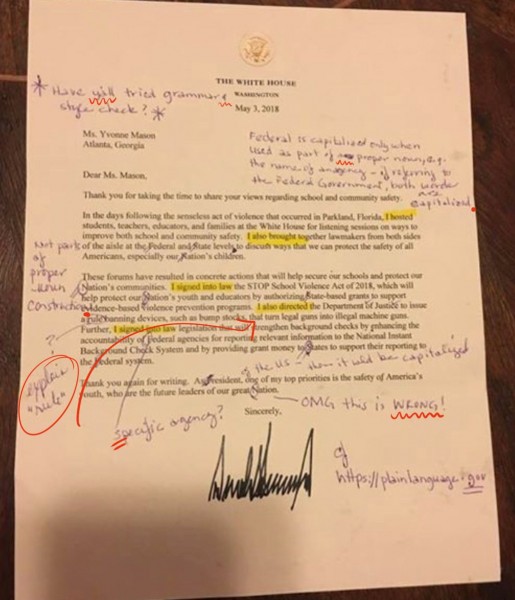 THE WHITE HOUSE
WASHINGTON
* Have y'all tried grammar &
style check? *
May 3, 2018
Ms. Yvonne Mason
Atlanta, Georgia
Federal is capitalized only when
used as part of proper noun, e.g.
the name of an agency - if referring to
the Federal Government, both words
are
capitalized.
Dear Ms. Mason,
Thank you for taking the time to share your views regarding school and community safety.
In the days following the senseless act of violence that occurred in Parkland, Florida, I hosted
students, teachers, educators, and families at the White House for listening sessions on ways to
improve both school and community safety. I also brought together lawmakers from both sides
of the aisle at the Federal and State levels to discuss ways that we can protect the safety of all
Americans, especially our Nation's children.
Not parts
of
proper
noun
construction
These forums have resulted in concrete actions that will help secure our schools and protect our
Nation's communities. I signed into law the STOP School Violence Act of 2018, which will
help protect our Nation's youth and educators by authorizing State-based grants to support
evidence-based violence prevention programs. I also directed the Department of Justice to issue
a rule banning devices, such as bump stocks, that turn legal guns into illegal machine guns.
Further, I signed into law legislation that will strengthen background checks by enhancing the
accountability of Federal agencies for reporting relevant information to the National Instant
Background Check System and by providing grant money to States to support their reporting to
the Federal system.
?
explain
"rule"
of the US - then it wld be capitalized
Thank you again for writing. As President, one of my top priorities is the safety of America's
youth, who are the future leaders of our great Nation.
OMG this is WRONG!
Sincerely,
specific agency?
cf
https://plainlanguage.gov